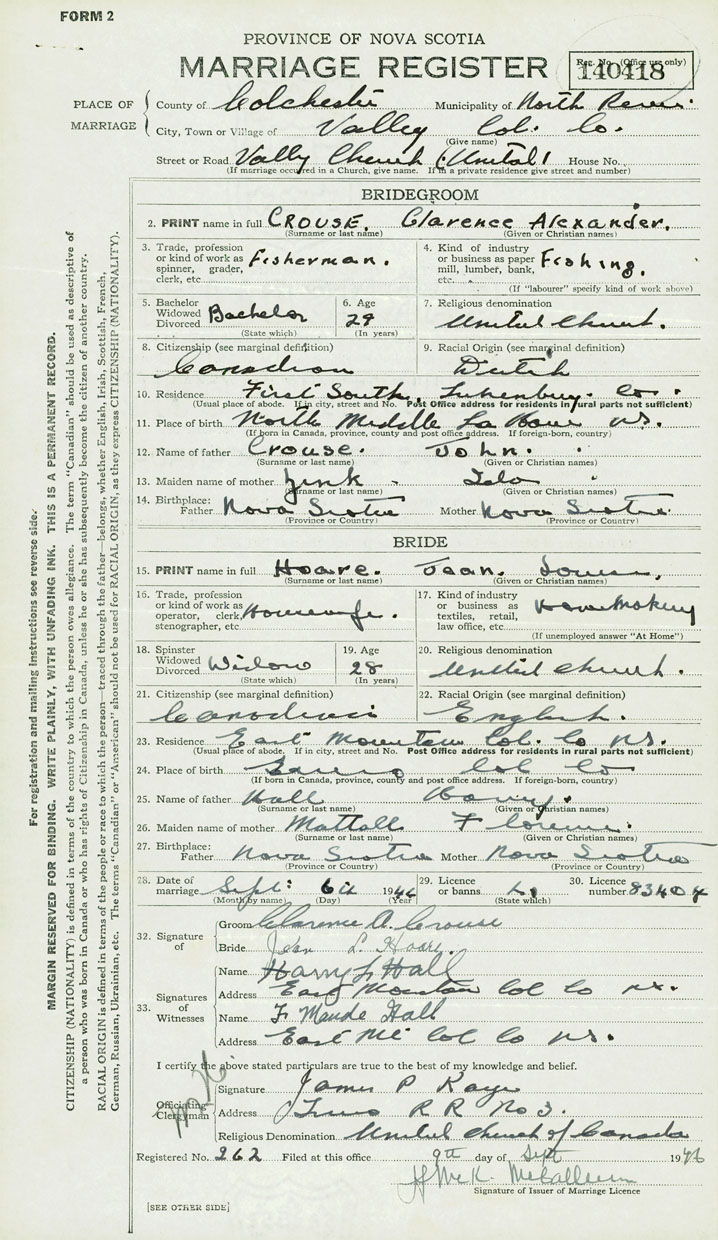 FORM 2
PROVINCE OF NOVA SCOTIA
MARRIAGE REGISTER
Reg. No. (Office use only)
140418
PLACE OF MARRIAGE
County of Colchester Municipality of North River
City, Town or Village of Valley Col. Co.
(Give name)
Street or Road Vally Church (United) House No.
(If marriage occurred in a Church, give name. If in a private residence give street and number)
BRIDEGROOM
2. PRINT name in full CROUSE, Clarence Alexander.
(Surname or last name) (Given or Christian names)
3. Trade, profession or kind of work as spinner, grader, clerk, etc. Fisherman.
4. Kind of industry or business as paper mill, lumber, bank, etc. Fishing.
(If "labourer" specify kind of work above)
5. Bachelor Widowed Divorced Bachelor
(State which)
6. Age 29
(In years)
7. Religious denomination United Church.
8. Citizenship (see marginal definition) Canadian
9. Racial Origin (see marginal definition) Dutch
10. Residence First South, Lunenburg. Co.
(Usual place of abode. If in city, street and No. Post Office address for residents in rural parts not sufficient)
11. Place of birth North Middle La Have N.S.
(If born in Canada, province, county and post office address. If foreign-born, country)
12. Name of father Crouse. John.
(Surname or last name) (Given or Christian names)
13. Maiden name of mother Zink Ida
(Surname or last name) (Given or Christian names)
14. Birthplace: Father Nova Scotia Mother Nova Scotia
(Province or Country) (Province or Country)
BRIDE
15. PRINT name in full Hoare. Jean. Louise,
(Surname or last name) (Given or Christian names)
16. Trade, profession or kind of work as operator, clerk, stenographer, etc. Housewife.
17. Kind of industry or business as textiles, retail, law office, etc. HomeMaking
(If unemployed answer "At Home")
18. Spinster Widowed Divorced Widow
(State which)
19. Age 28
(In years)
20. Religious denomination United Church.
21. Citizenship (see marginal definition) Canadian
22. Racial Origin (see marginal definition) English.
23. Residence East Mountain Col. Co N.S.
(Usual place of abode. If in city, street and No. Post Office address for residents in rural parts not sufficient)
24. Place of birth Col Co
(If born in Canada, province, county and post office address. If foreign-born, country)
25. Name of father Hall Harry.
(Surname or last name) (Given or Christian names)
26. Maiden name of mother Mattall Florence.
(Surname or last name) (Given or Christian names)
27. Birthplace: Father Nova Scotia Mother Nova Scotia
(Province or Country) (Province or Country)
28. Date of marriage Sept: 6th 1946
(Month by name) (Day) (Year)
29. Licence or banns L.
30. Licence number 83404
32. Signature of
Groom Clarence A. Crouse
Bride Jean L. Hoare.
33. Signatures of Witnesses
Name Harry L Hall
Address East Mountain Col Co N.S.
Name F Maude Hall
Address East Mt Col Co N.S.
I certify the above stated particulars are true to the best of my knowledge and belief.
Officiating Clergyman
Signature James P Kaye
Address Truro R R No 3.
Religious Denomination United Church of Canada
Registered No. 262 Filed at this office 9th day of Sept 1946
H McK. McCallum
Signature of Issuer of Marriage Licence
[SEE OTHER SIDE]
For registration and mailing instructions see reverse side.
MARGIN RESERVED FOR BINDING. WRITE PLAINLY, WITH UNFADING INK. THIS IS A PERMANENT RECORD.
CITIZENSHIP (NATIONALITY) is defined in terms of the country to which the person owes allegiance. The term "Canadian" should be used as descriptive of
a person who was born in Canada or who has rights of Citizenship in Canada, unless he or she has subsequently become the citizen of another country.
RACIAL ORIGIN is defined in terms of the people or race to which the person—traced through the father—belongs, whether English, Irish, Scottish, French,
German, Russian, Ukrainian, etc. The terms "Canadian" or "American" should not be used for RACIAL ORIGIN, as they express CITIZENSHIP (NATIONALITY).